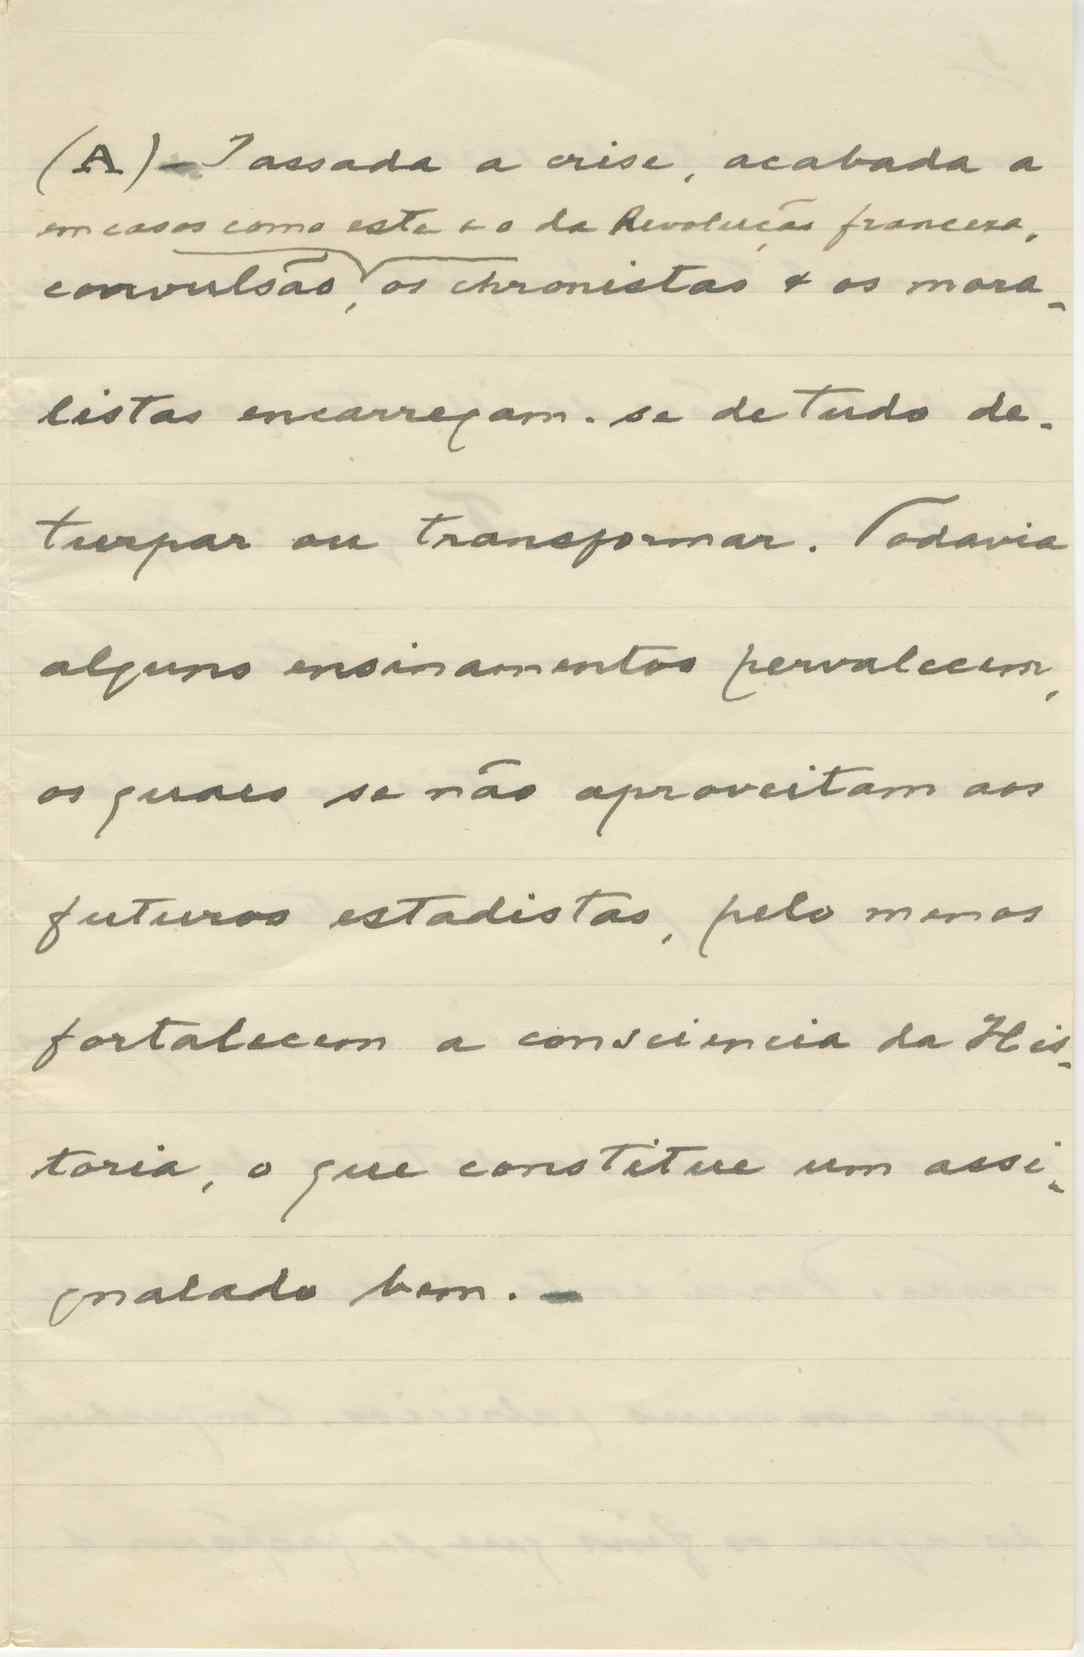 (A) – Passada a crise, acabada a
em casos como este e o da Revolução francesa,
convulsão, os chronistas e os mora-
listas encarregam-se de tudo de-
turpar ou transformar. Todavia
alguns ensinamentos pervalecem,
os quaes se não aproveitam aos
futuros estadistas, pelo menos
fortalecem a consciencia da His-
toria, o que constitue um assi-
gnalado bem. –